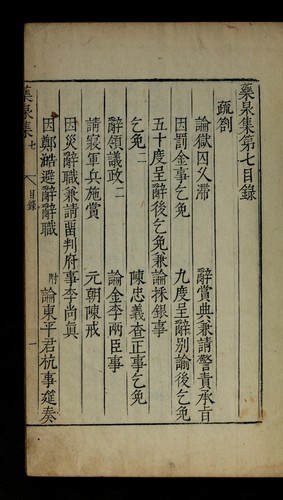 藥泉集第七目錄
疏劄
論獄囚久滯 辭賞典兼請警責承旨
因罰金事乞免 九度呈辭別諭後乞免
五十度呈辭後乞免兼論採銀事
乞免二 陳忠義查正事乞免
辭領議政二 論金李兩臣事
請寢軍兵施賞 元朝陳戒
因災辭職兼請留判府事李尚真
因鄭澔避辭辭職 附論東平君杭事筵奏
藥泉集 七 目錄 一